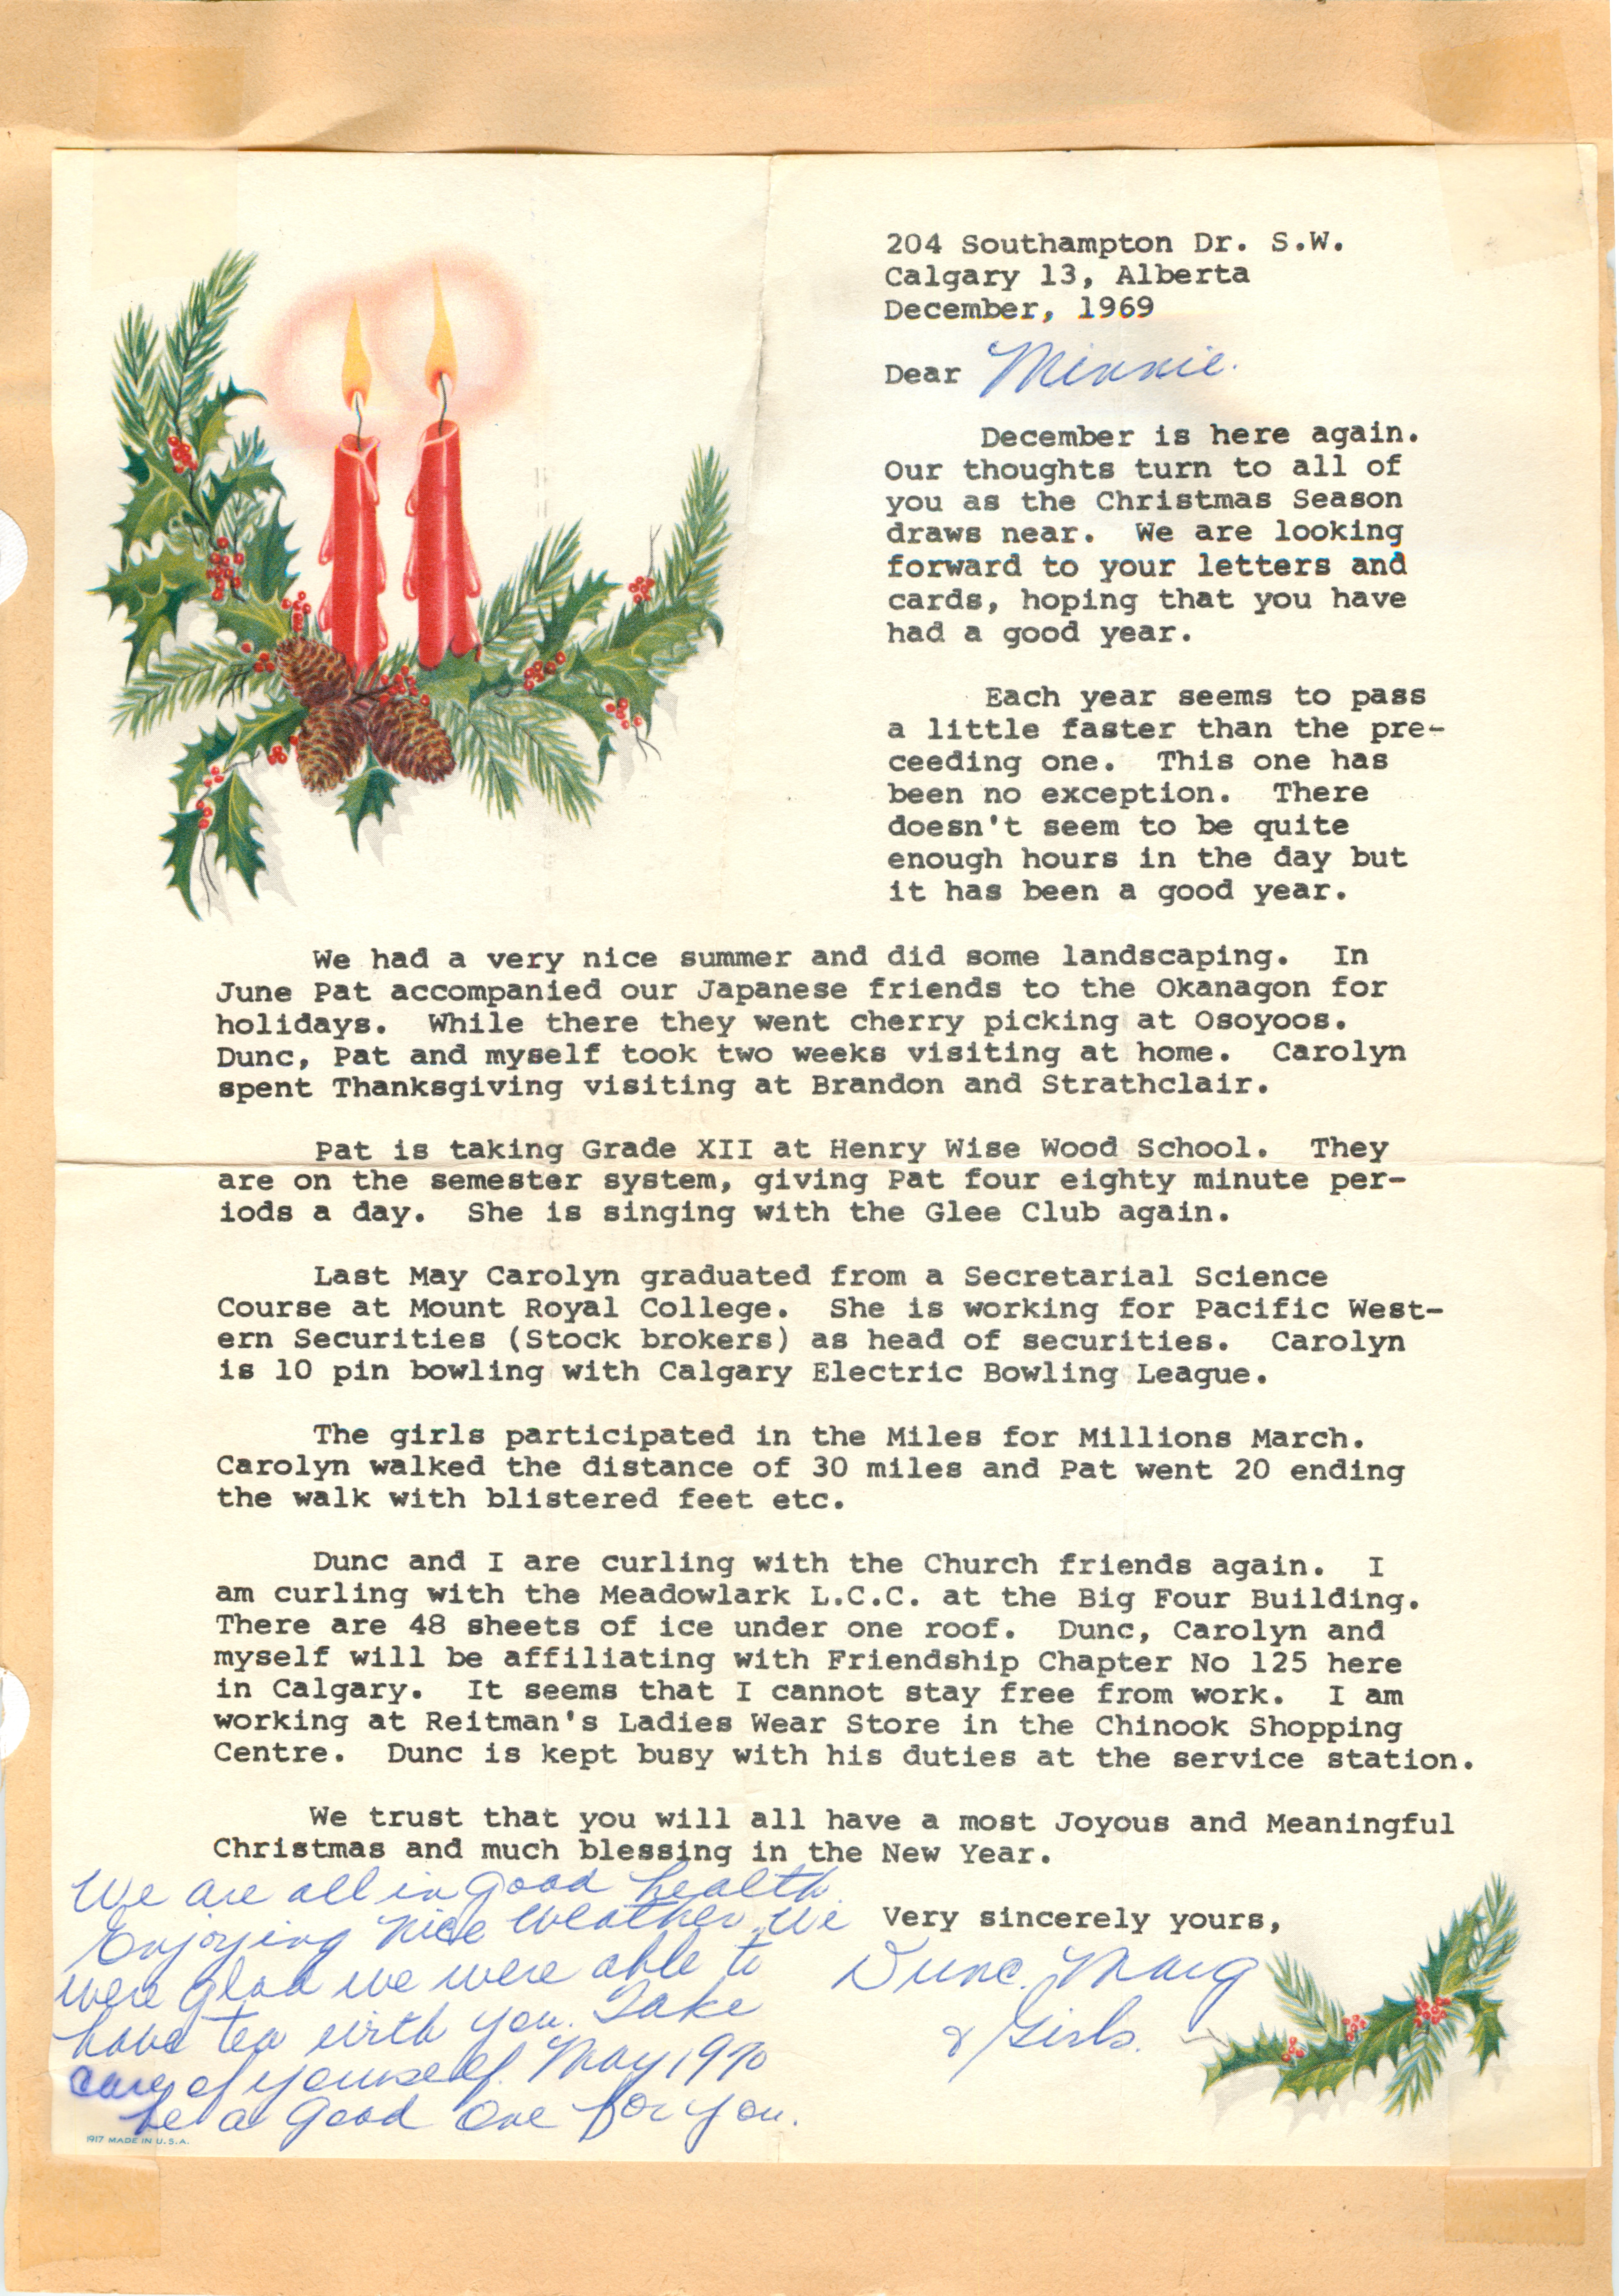 204 Southampton Dr. S.W.
Calgary 13, Alberta
December, 1969
Dear Minnie.
December is here again.
Our thoughts turn to all of
you as the Christmas Season
draws near. We are looking
forward to your letters and
cards, hoping that you have
had a good year.
Each year seems to pass
a little faster than the pre-
ceeding one. This one has
been no exception. There
doesn't seem to be quite
enough hours in the day but
it has been a good year.
We had a very nice summer and did some landscaping. In
June Pat accompanied our Japanese friends to the Okanagon for
holidays. While there they went cherry picking at Osoyoos.
Dunc, Pat and myself took two weeks visiting at home. Carolyn
spent Thanksgiving visiting at Brandon and Strathclair.
Pat is taking Grade XII at Henry Wise Wood School. They
are on the semester system, giving Pat four eighty minute per-
iods a day. She is singing with the Glee Club again.
Last May Carolyn graduated from a Secretarial Science
Course at Mount Royal College. She is working for Pacific West-
ern Securities (Stock brokers) as head of securities. Carolyn
is 10 pin bowling with Calgary Electric Bowling League.
The girls participated in the Miles for Millions March.
Carolyn walked the distance of 30 miles and Pat went 20 ending
the walk with blistered feet etc.
Dunc and I are curling with the Church friends again. I
am curling with the Meadowlark L.C.C. at the Big Four Building.
There are 48 sheets of ice under one roof. Dunc, Carolyn and
myself will be affiliating with Friendship Chapter No 125 here
in Calgary. It seems that I cannot stay free from work. I am
working at Reitman's Ladies Wear Store in the Chinook Shopping
Centre. Dunc is kept busy with his duties at the service station.
We trust that you will all have a most Joyous and Meaningful
Christmas and much blessing in the New Year.
Very sincerely yours,
Dunc. Marg
& Girls.
We are all in good health.
Enjoying nice weather. We
were glad we were able to
have tea with you. Take
care of yourself. May 1970
be a good one for you.
1917 MADE IN U.S.A.